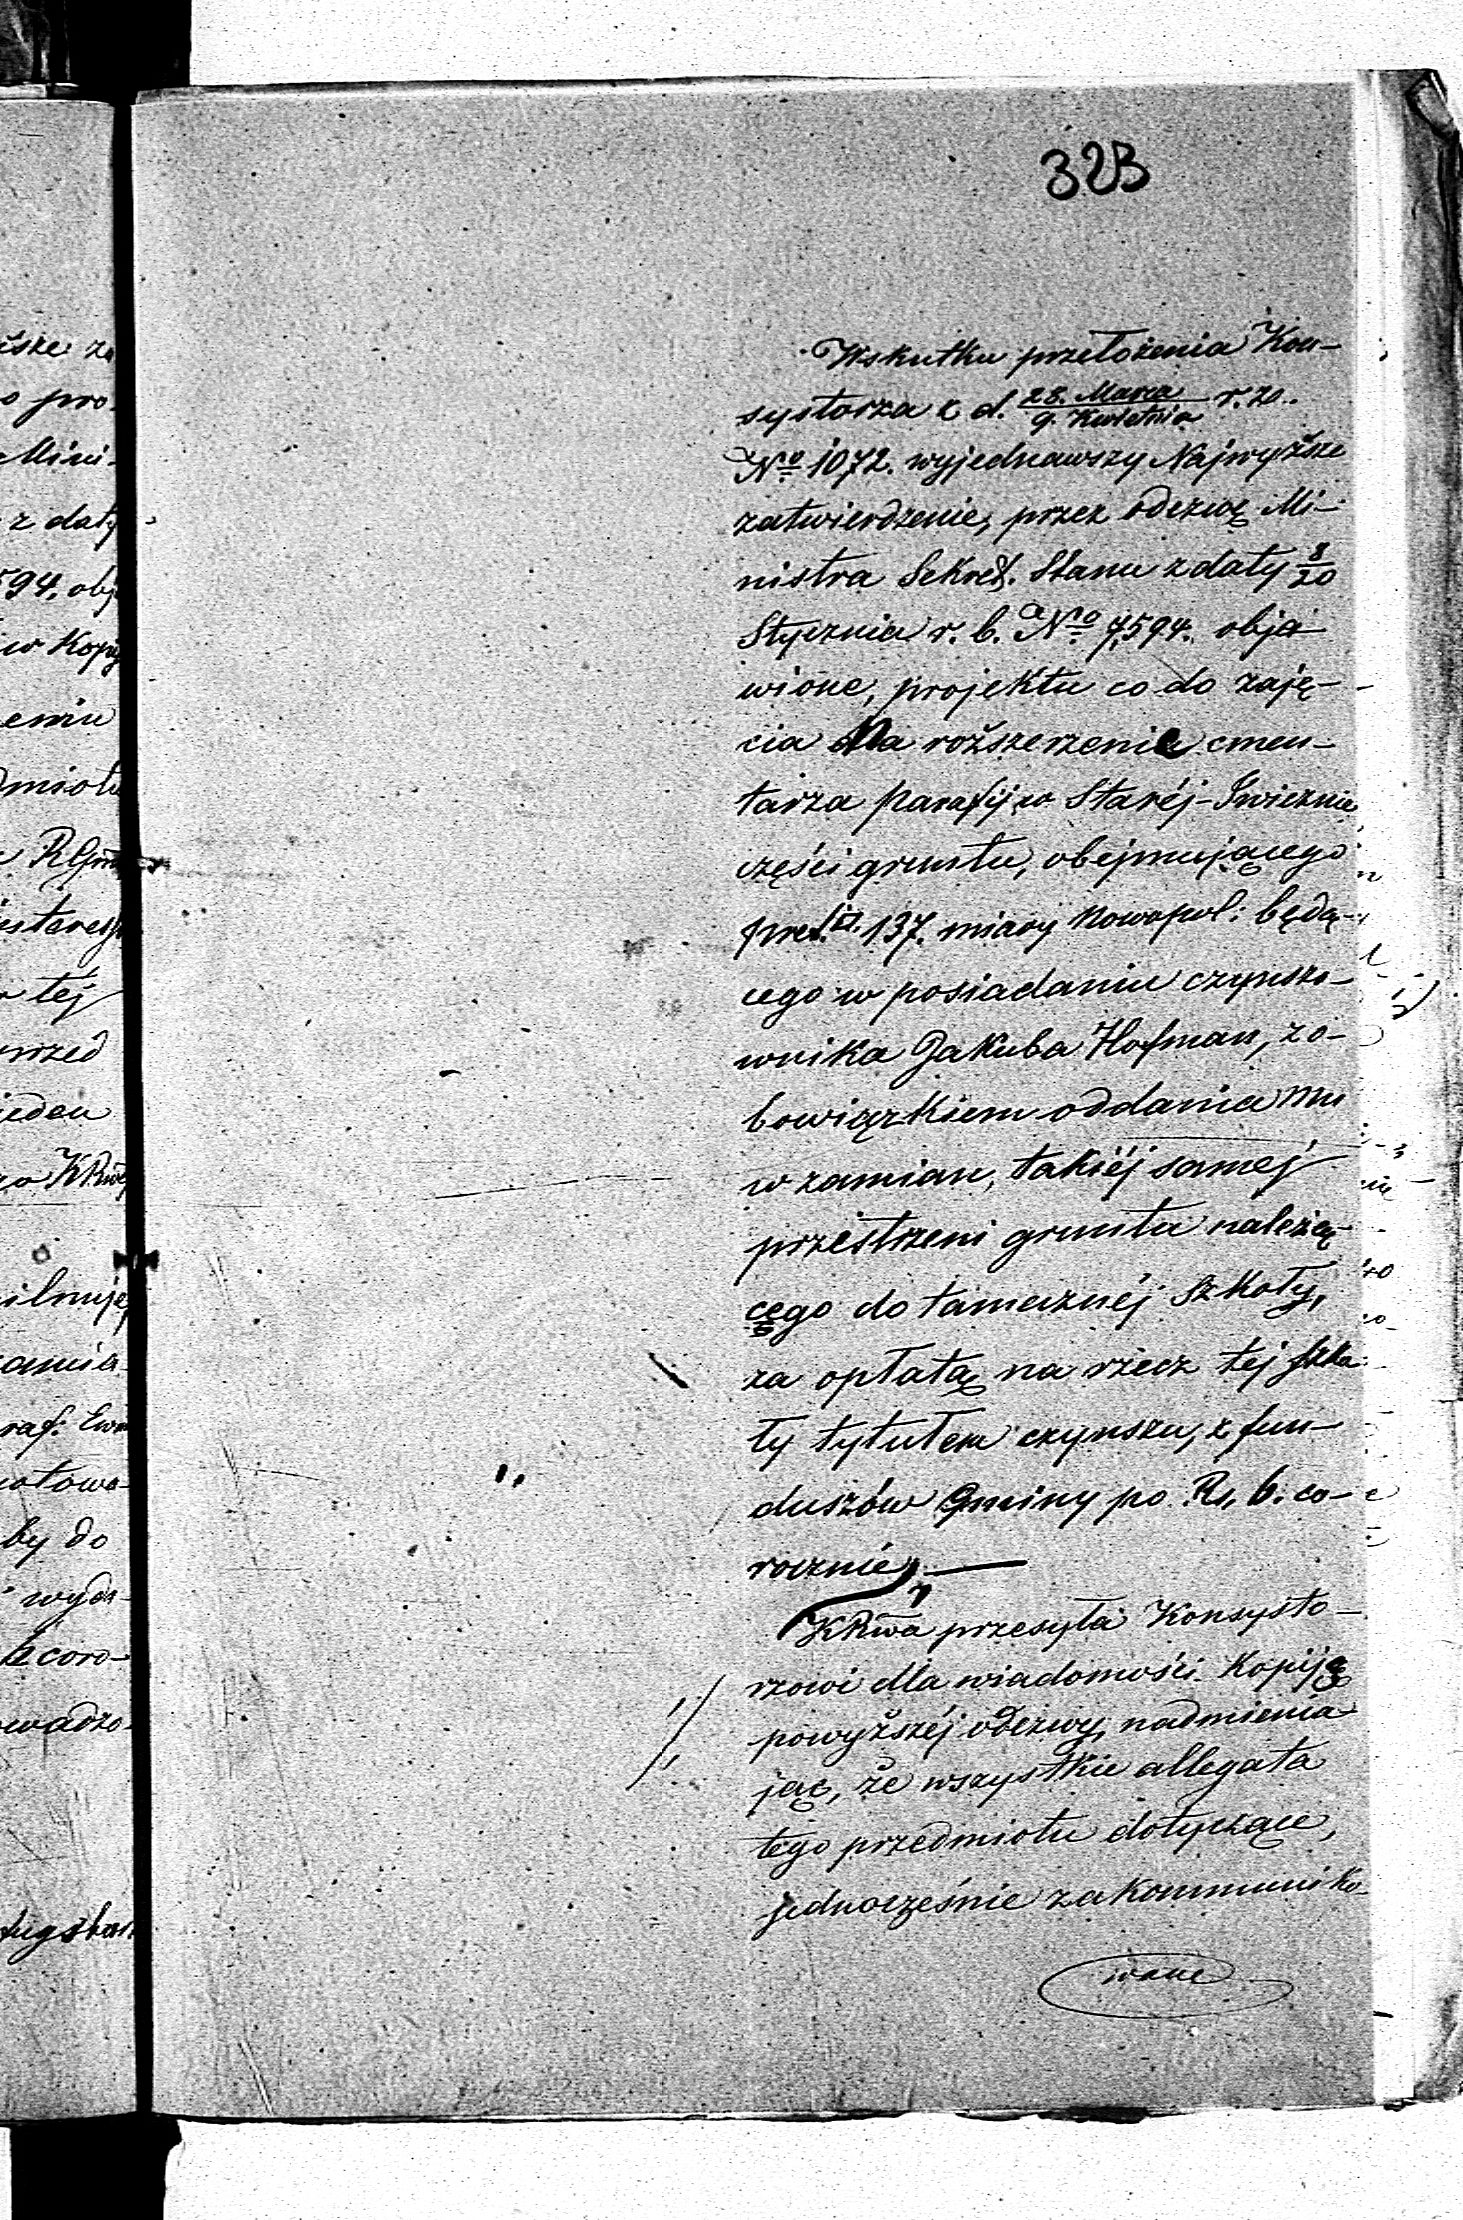 323
Wskutku przełożenia Kon-
systorza z d. 28. Marca / 9. Kwietnia r. z.
No 1072. wyjednawszy Najwyższe
zatwierdzenie, przez odezwę Mi-
nistra Sekret. Stanu z daty 8/20
Stycznia r. b. No 7,594. obja-
wione, projektu co do zaję-
cia na rozszerzenie cmen-
tarza Parafij w Staréj-Iwicznie
części gruntu, obejmującego
pręt. 137. miary Nowopol: będą-
cego w posiadaniu czynszo-
wnika Jakuba Hofman, z o-
bowiązkiem oddania mu
w zamian, takiéj samej
przestrzeni gruntu należą-
cego do tamecznéj szkoły,
za opłatą na rzecz tej szko-
ły tytułem czynszu, z fun-
duszów Gminy po Rs. 6. co-
rocznie,
KRwa przesyła Konsysto-
rzowi dla wiadomości Kopiję
powyższéj odezwy, nadmienia-
jąc, że wszystkie allegata
tego przedmiotu dotyczące,
jednocześnie zakommuniko-
wane